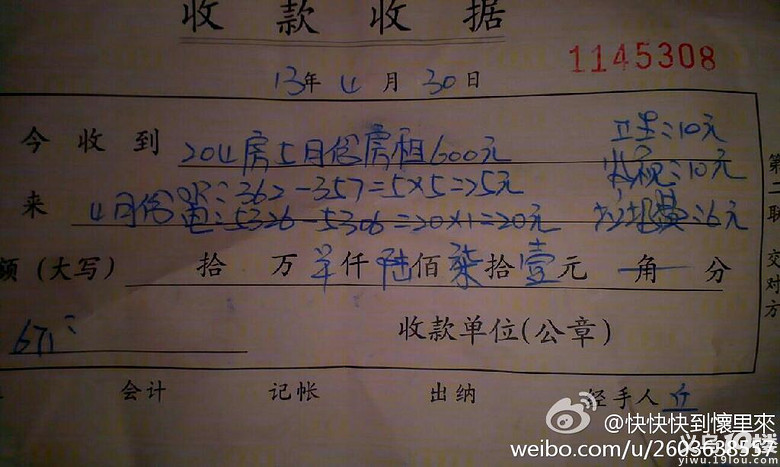 收款收据
13年4月30日
1145308
今收到 204房5月份房租600元 卫生:10元
监视:10元
来 4月份 水:362-357=5×5=25元
电:5326-5306=20×1=20元 垃圾费:6元
额(大写) 拾 万 仟 陆佰 柒拾 壹元 角 分
671
收款单位(公章)
会计 记帐 出纳 经手人 丘
第二联 交对方
@快快快到懷里來
weibo.com/u/2603638557
yiwu.19lou.com